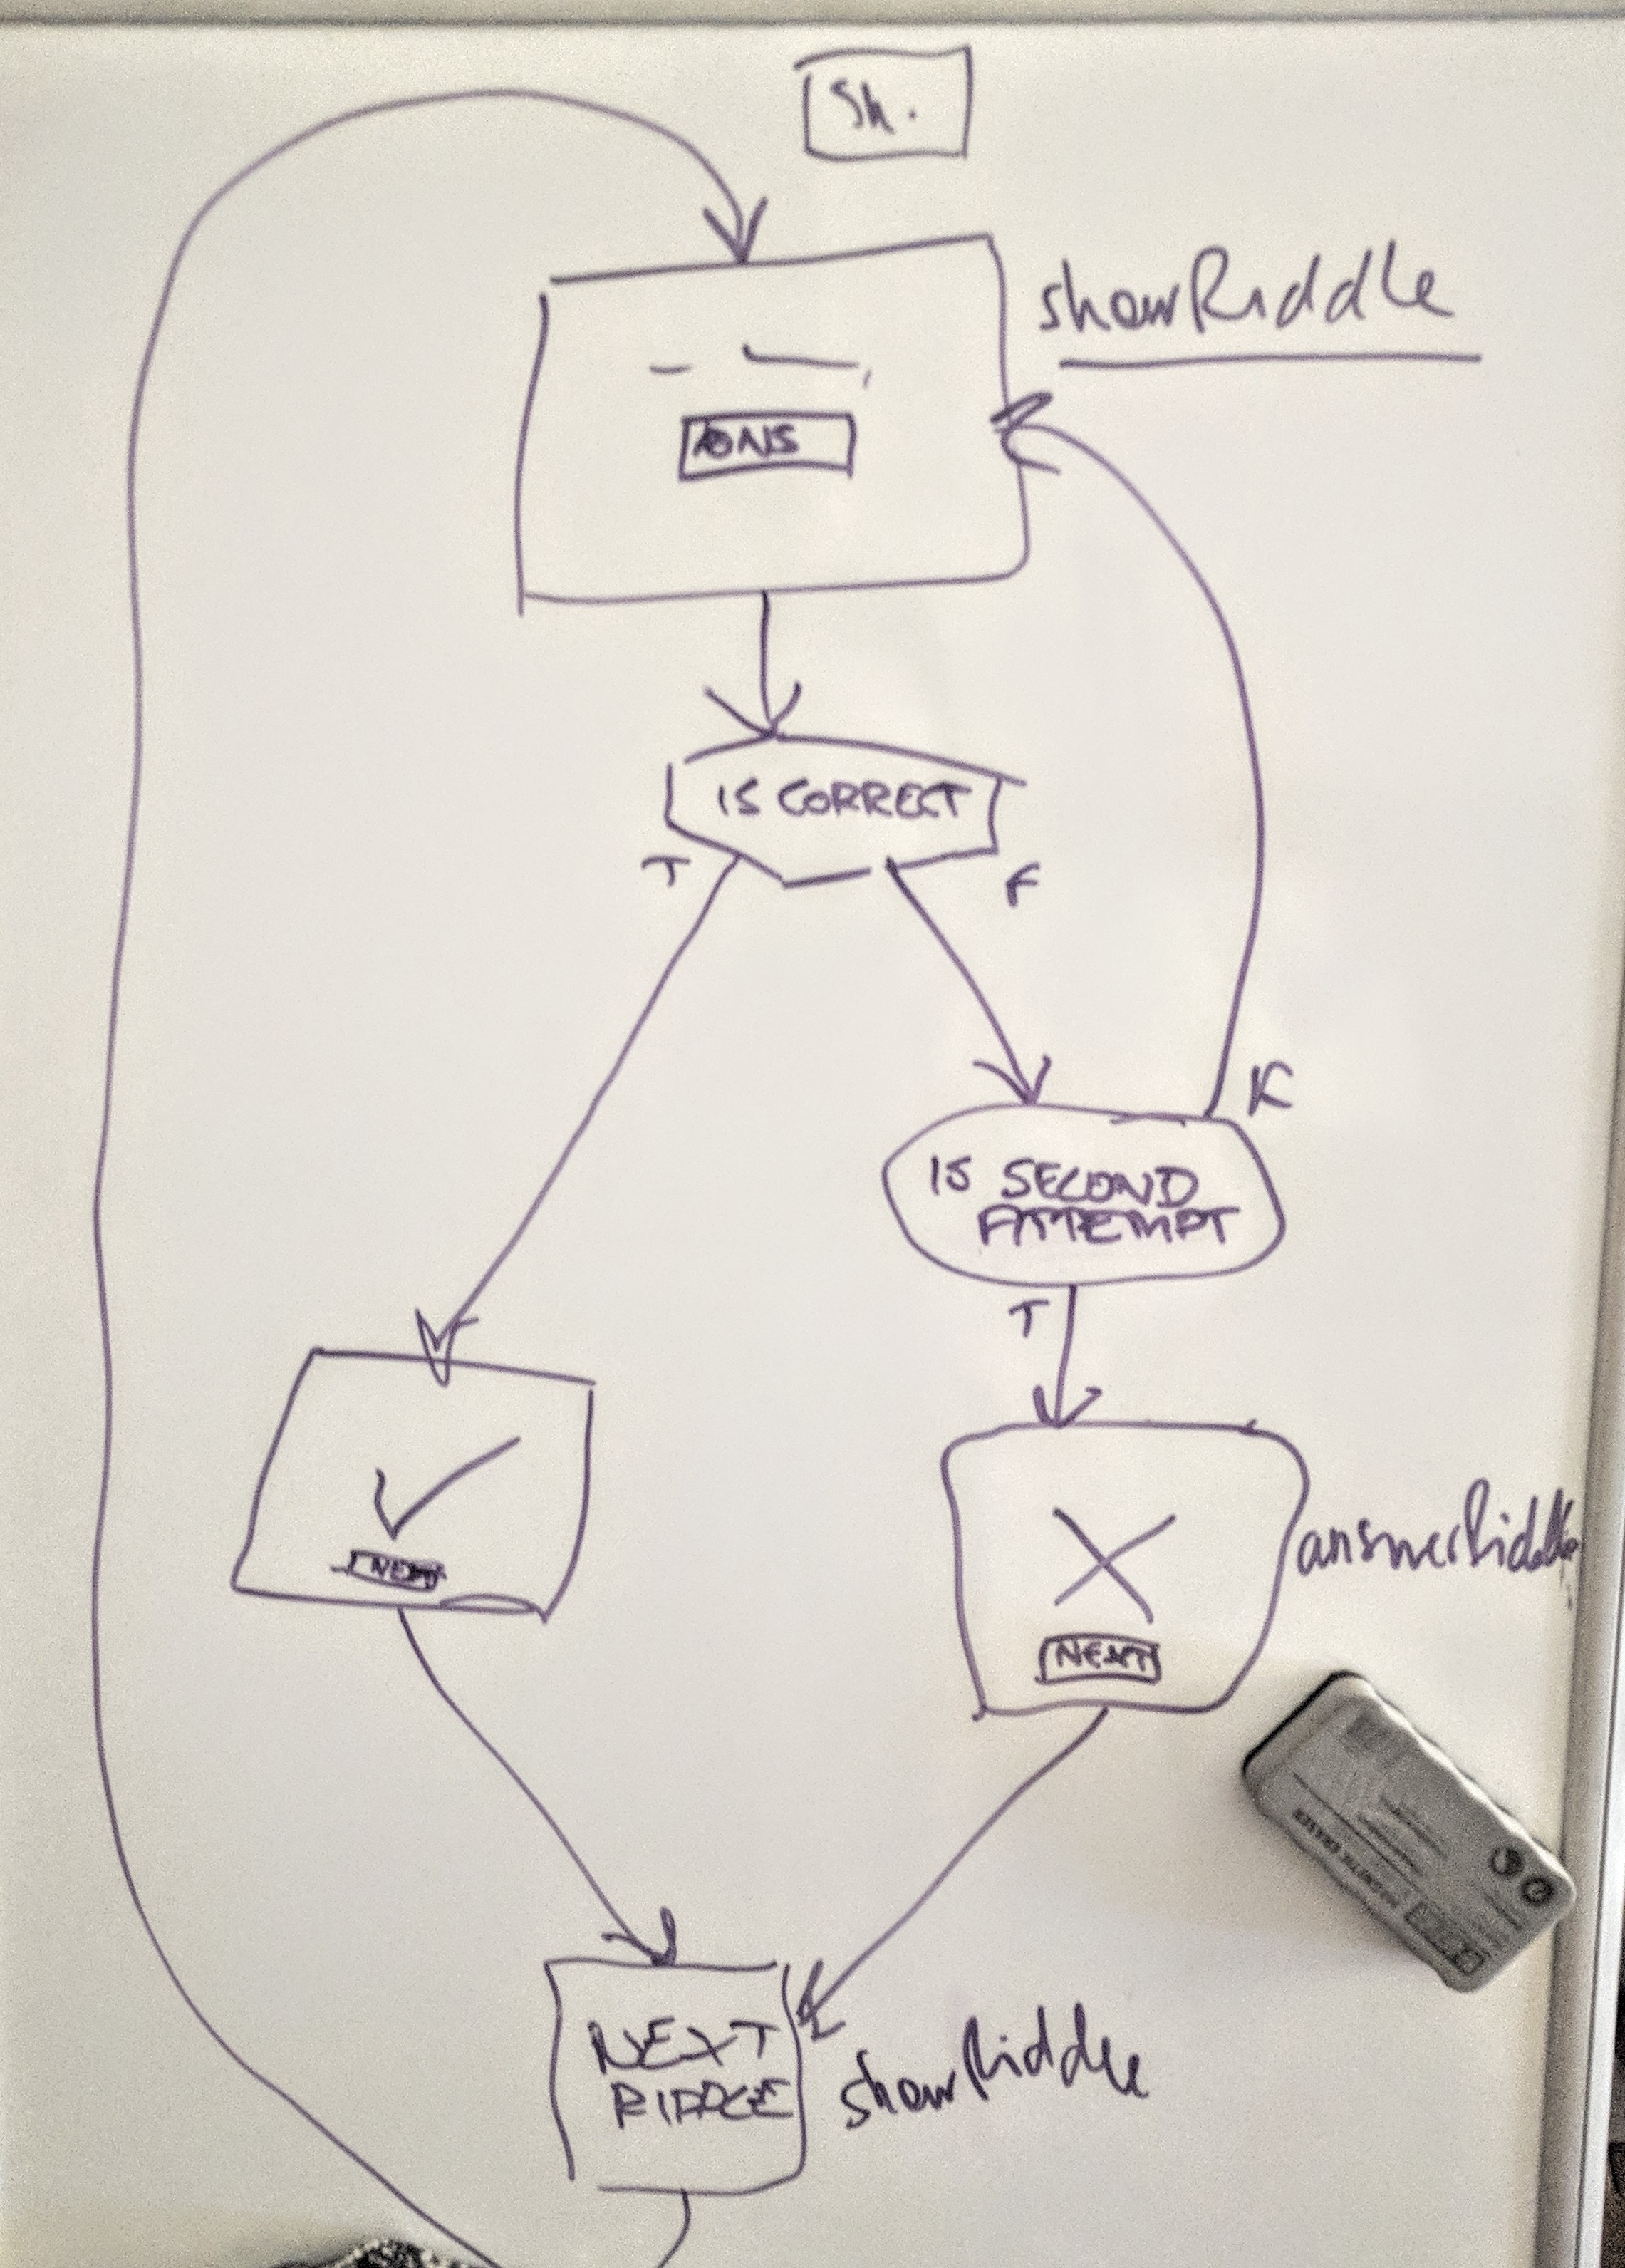 Sh.
showRiddle
ANS
IS CORRECT
T
F
F
IS SECOND
ATTEMPT
T
NEXT
answerRiddle
NEXT
NEXT
RIDDLE
showRiddle